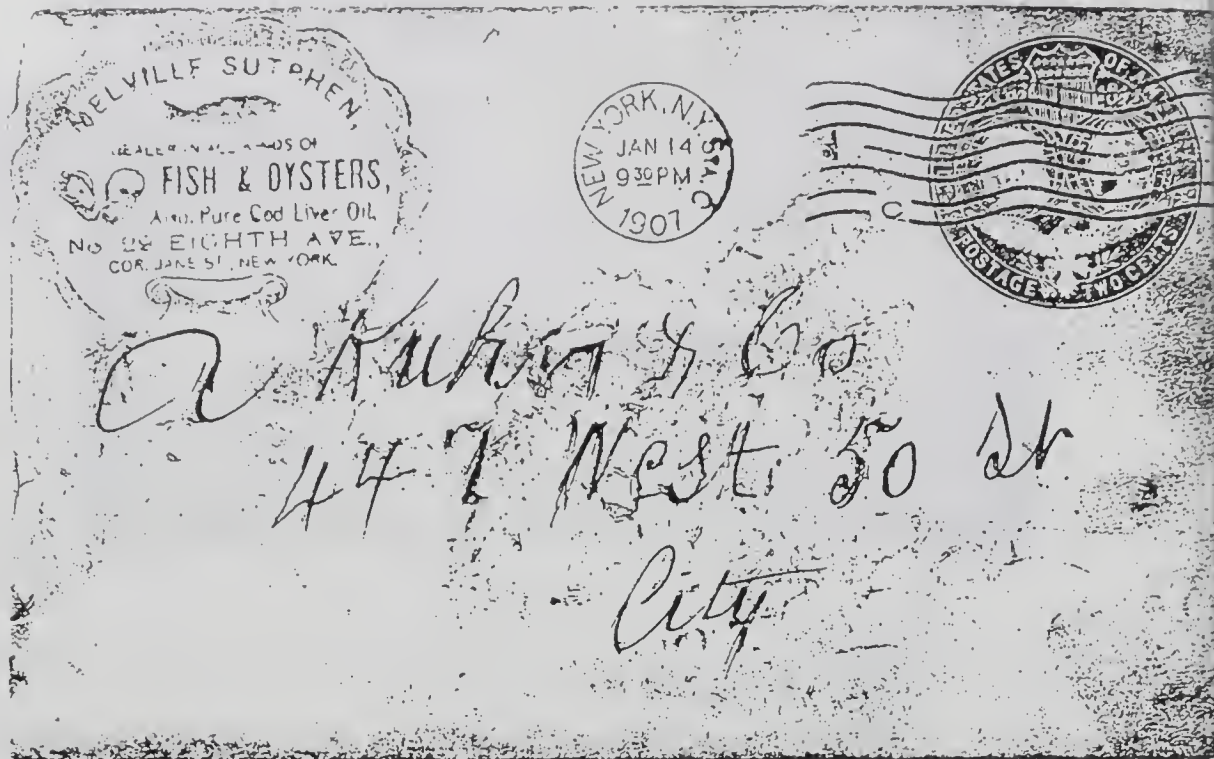 DELVILLE SUTPHEN,
DEALER IN ALL KINDS OF
FISH & OYSTERS,
Also, Pure Cod Liver Oil,
No 28 EIGHTH AVE.,
COR. JANE ST., NEW YORK.
NEW YORK, N.Y. STA. C
JAN 14
9 30 PM
1907
C
UNITED STATES OF AMERICA
POSTAGE TWO CENTS
A Kuhn & Co
447 West 50 St
City